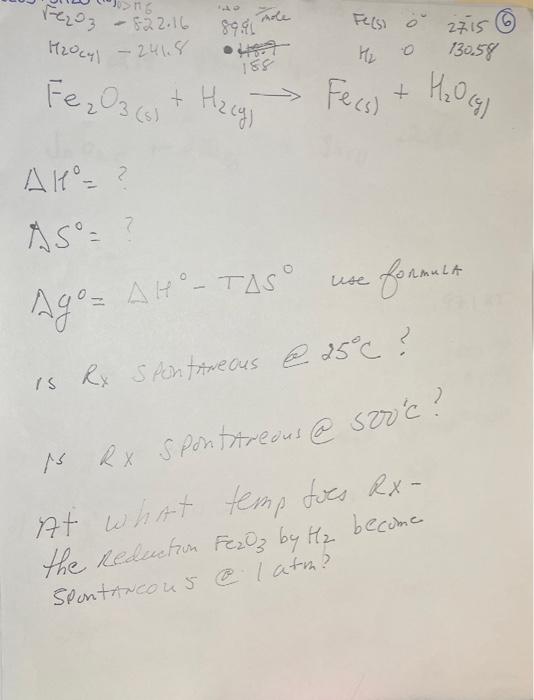 Fe2O3 -822.16 89.91 mole Fe(s) 0 27.15 6
H2O(g) -241.8 188 H2 0 130.58
Fe2O3(s) + H2(g) → Fe(s) + H2O(g)
ΔH°= ?
ΔS°= ?
Δg°= ΔH° - TΔS° use formula
is Rx spontaneous @ 25°C?
is Rx spontaneous @ 500°C?
At what temp does Rx -
the reduction Fe2O3 by H2 become
spontaneous @ 1 atm?